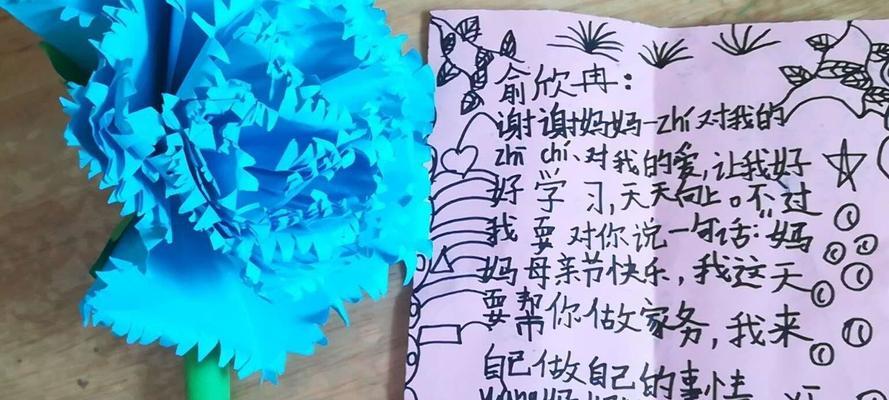 俞欣冉：
谢谢妈妈一zhí对我的
zhī chí、对我的爱,让我好
好学习,天天向上。不过
我要对你说一句话：“妈
妈母亲节快乐，我这天
要帮你做家务，我来
自己做自己的事情